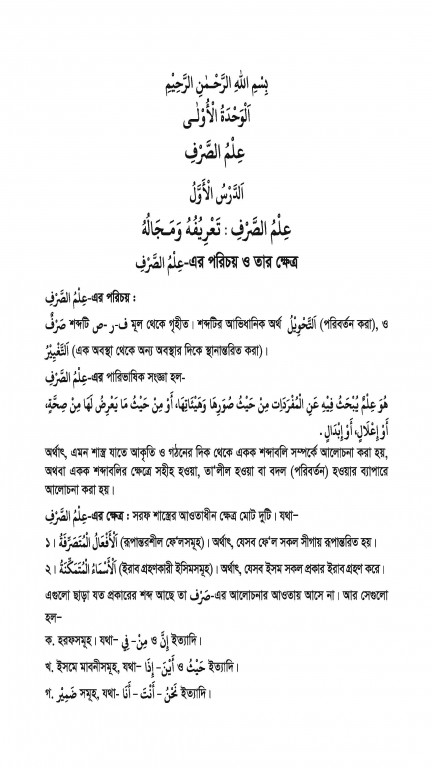 بِسْمِ اللهِ الرَّحْـمٰنِ الرَّحِيْمِ
اَلْوَحْدَةُ الْأُوْلٰـى
عِلْمُ الصَّرْفِ
اَلدَّرْسُ الْأَوَّلُ
عِلْمُ الصَّرْفِ : تَعْرِيْفُهُ وَمَـجَالُهُ
عِلْمُ الصَّرْفِ-এর পরিচয় ও তার ক্ষেত্র
عِلْمُ الصَّرْفِ-এর পরিচয় :
صَرْفٌ শব্দটি ف-ر-ص মূল থেকে গৃহীত। শব্দটির আভিধানিক অর্থ اَلتَّحْوِيْلُ (পরিবর্তন করা), ও
اَلتَّغْيِيْرُ (এক অবস্থা থেকে অন্য অবস্থার দিকে স্থানান্তরিত করা)।
عِلْمُ الصَّرْفِ-এর পারিভাষিক সংজ্ঞা হল-
هُوَ عِلْمٌ يُبْحَثُ فِيْهِ عَنِ الْمُفْرَدَاتِ مِنْ حَيْثُ صُوَرِهَا وَهَيْئَاتِهَا، أَوْ مِنْ حَيْثُ مَا يَعْرِضُ لَهَا مِنْ صِحَّةٍ،
أَوْ إِعْلَالٍ، أَوْ إِبْدَالٍ .
অর্থাৎ, এমন শাস্ত্র যাতে আকৃতি ও গঠনের দিক থেকে একক শব্দাবলি সম্পর্কে আলোচনা করা হয়,
অথবা একক শব্দাবলির ক্ষেত্রে সহীহ হওয়া, তা'লীল হওয়া বা বদল (পরিবর্তন) হওয়ার ব্যাপারে
আলোচনা করা হয়।
عِلْمُ الصَّرْفِ-এর ক্ষেত্র : সরফ শাস্ত্রের আওতাধীন ক্ষেত্র মোট দুটি। যথা–
১। اَلْأَفْعَالُ الْمُتَصَرِّفَةُ (রূপান্তরশীল ফে'লসমূহ)। অর্থাৎ, যেসব ফে'ল সকল সীগায় রূপান্তরিত হয়।
২। اَلْأَسْمَاءُ الْمُتَمَكِّنَةُ (ইরাব গ্রহণকারী ইসিমসমূহ)। অর্থাৎ, যেসব ইসম সকল প্রকার ইরাব গ্রহণ করে।
এগুলো ছাড়া যত প্রকারের শব্দ আছে তা صَرْف-এর আলোচনার আওতায় আসে না। আর সেগুলো
হল–
ক. হরফসমূহ। যথা– مِنْ- فِيْ ও إِنَّ ইত্যাদি।
খ. ইসমে মাবনীসমূহ, যথা– أَيْنَ- إِذَا ও حَيْثُ ইত্যাদি।
গ. ضَمِيْر সমূহ, যথা- نَحْنُ – أَنْتَ – أَنَا ইত্যাদি।